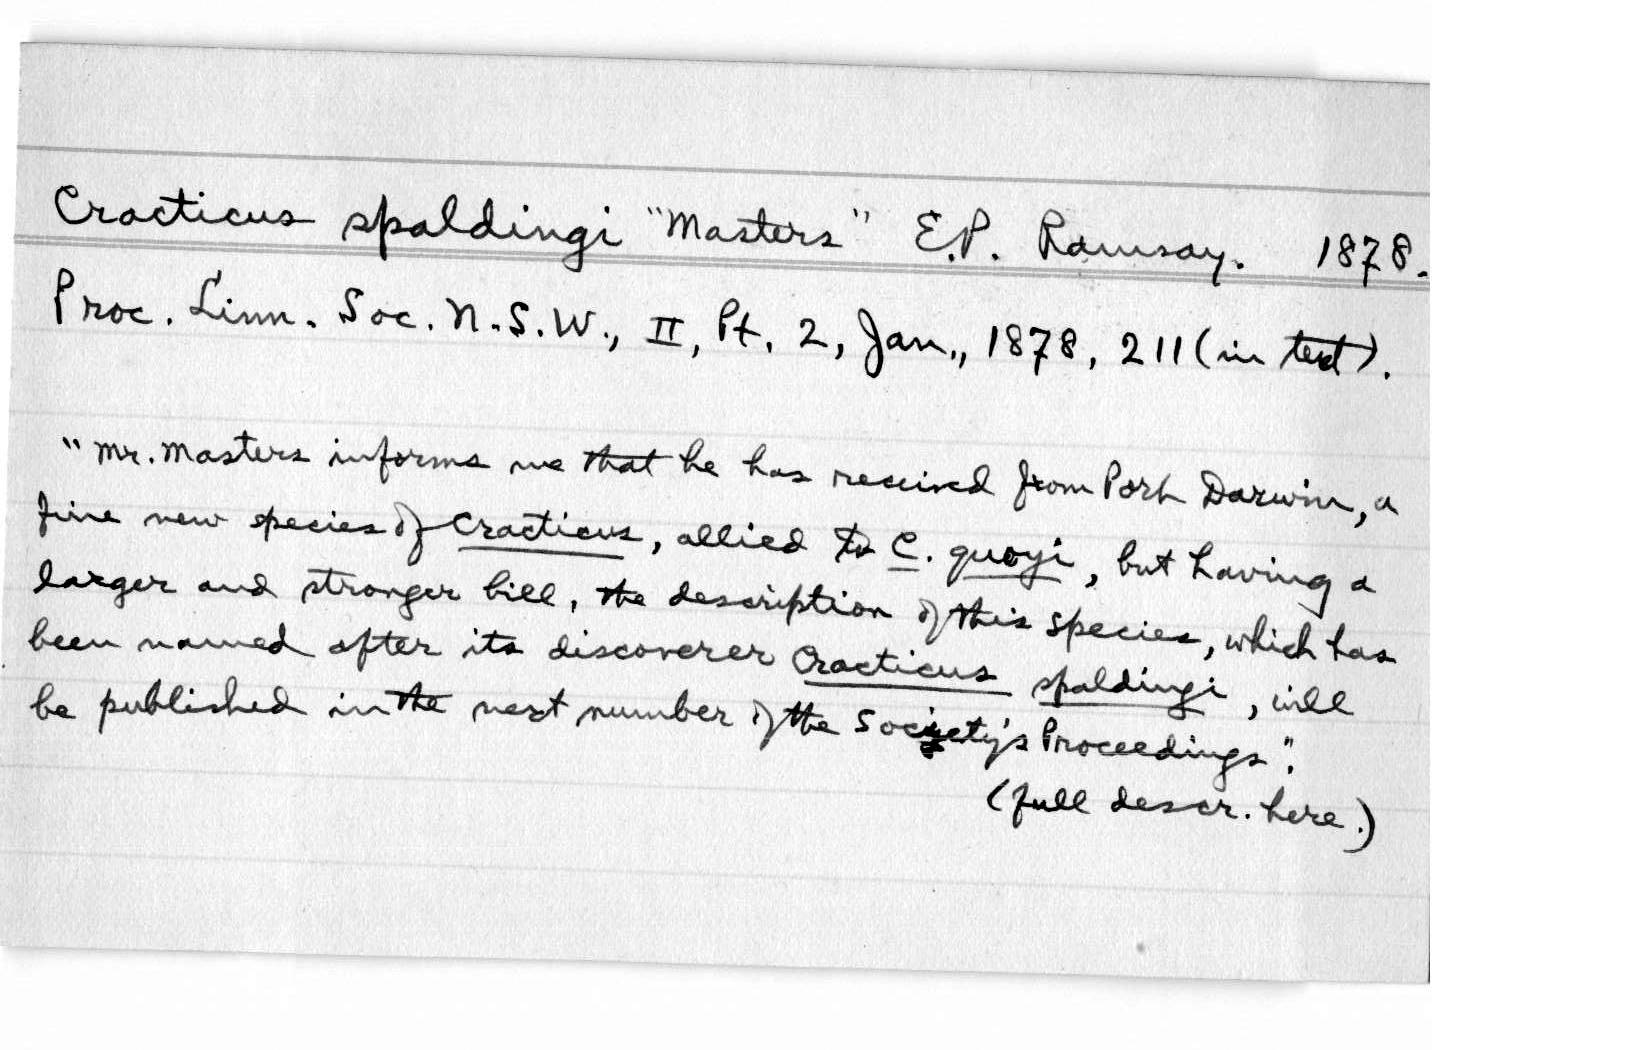 Cracticus spaldingi "Masters" E.P. Ramsay. 1878.
Proc. Linn. Soc. N.S.W., II, Pt. 2, Jan., 1878, 211 (in text).
"Mr. Masters informs me that he has received from Port Darwin, a
fine new species of Cracticus, allied to C. quoyi, but having a
larger and stronger bill, the description of this species, which has
been named after its discoverer Cracticus spaldingi, will
be published in the next number of the Society's Proceedings".
(full descr. here.)